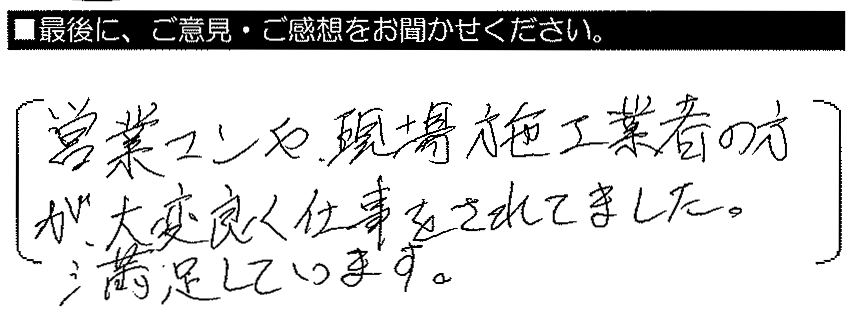 ■最後に、ご意見・ご感想をお聞かせください。
営業マンや、現場施工業者の方
が、大変良く仕事をされてました。
満足しています。